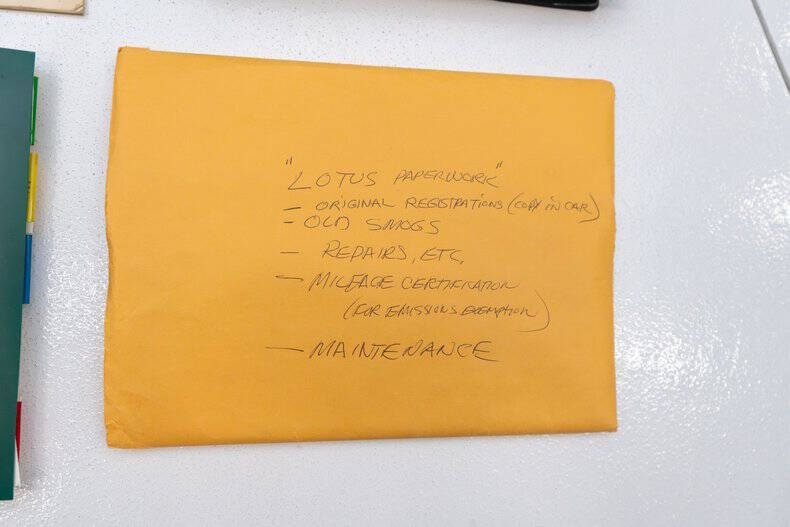 "LOTUS PAPERWORK"
— ORIGINAL REGISTRATIONS (COPY IN CAR)
- OLD SMOGS
— REPAIRS, ETC.
— MILEAGE CERTIFICATION
(FOR EMISSIONS EXEMPTION)
— MAINTENANCE